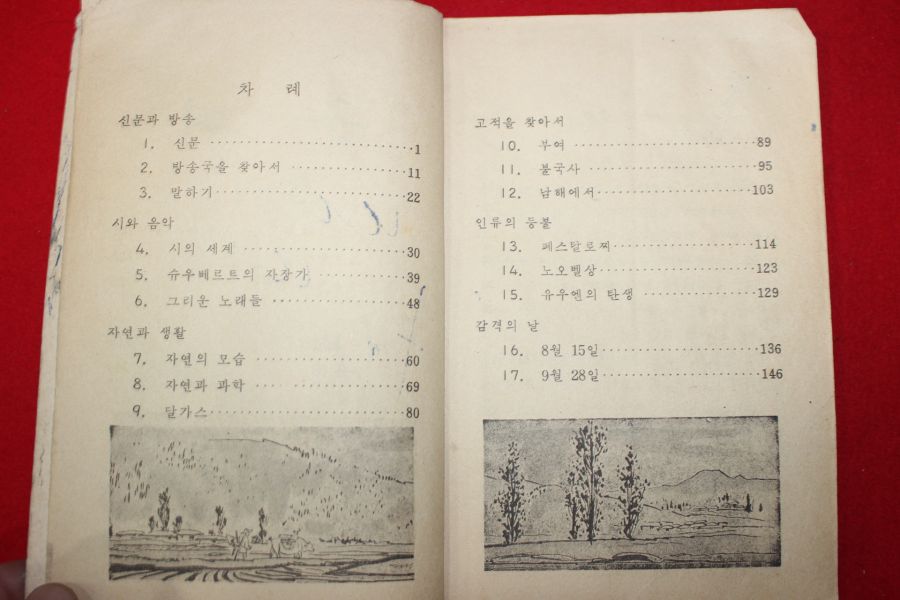 차 례
신문과 방송
1. 신문 1
2. 방송국을 찾아서 11
3. 말하기 22
시와 음악
4. 시의 세계 30
5. 슈우베르트의 자장가 39
6. 그리운 노래들 48
자연과 생활
7. 자연의 모습 60
8. 자연과 과학 69
9. 달가스 80
고적을 찾아서
10. 부여 89
11. 불국사 95
12. 남해에서 103
인류의 등불
13. 페스탈로찌 114
14. 노오벨상 123
15. 유우엔의 탄생 129
감격의 날
16. 8월 15일 136
17. 9월 28일 146